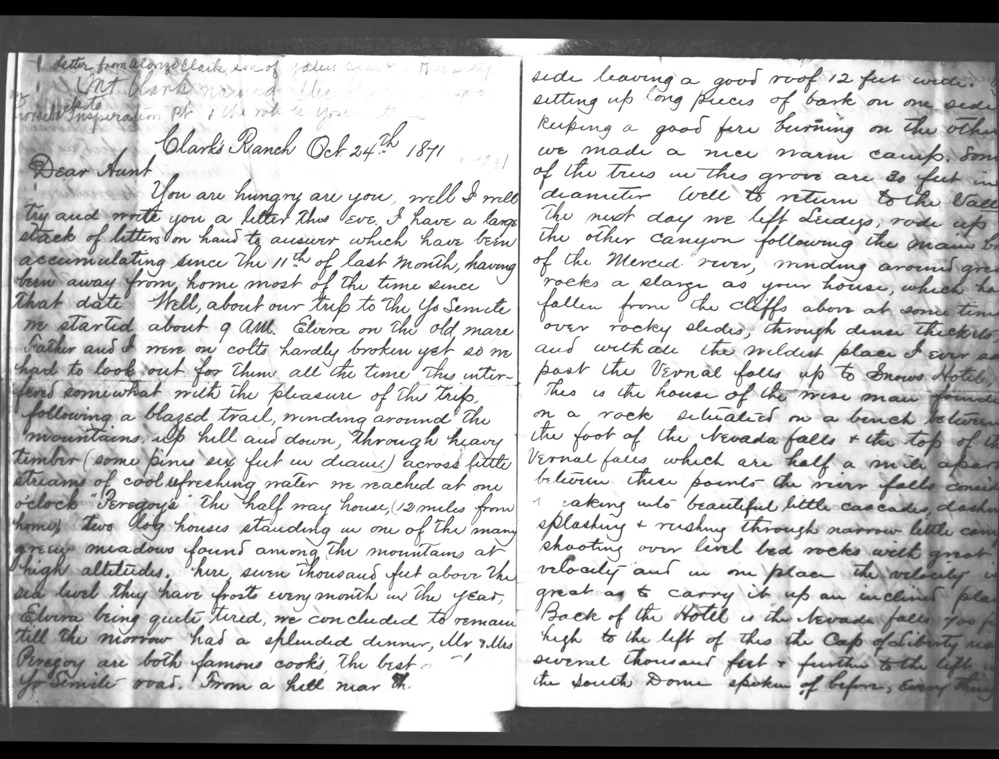 Letter from Alonzo Clark son of Galen Clark
Mt Clark named
Inspiration Pt & the
Clark's Ranch Oct. 24th 1871
Dear Aunt
You are hungry are you, well I will
try and write you a letter this eve, I have a large
stack of letters on hand to answer which have been
accumulating since the 11th of last month, having
been away from home most of the time since
that date. Well, about our trip to the Yo Semite
we started about 9 AM. Elvira on the old mare
Father and I were on colts hardly broken yet so we
had to look out for them all the time this inter-
fered somewhat with the pleasure of the trip,
following a blazed trail, winding around the
mountains, up hill and down, through heavy
timber (some pines six feet in diam) across little
streams of cool refreshing water we reached at one
o'clock "Peregoy's" the half way house, (12 miles from
home) two log houses standing in one of the many
green meadows found among the mountains at
high altitudes, here seven thousand feet above the
sea level they have frosts every month in the year,
Elvira being quite tired, we concluded to remain
till the morrow had a splended dinner, Mr & Mrs
Peregoy are both famous cooks, the best
Yo Semite road. From a hill near
side leaving a good roof 12 feet wide.
setting up long pieces of bark on one side
keeping a good fire burning on the other
we made a nice warm camp. Some
of the trees in this grove are 30 feet in
diameter Well to return to the
The next day we left Leidigs, rode up
the other canyon following the main
of the Merced river, winding around
rocks a slarge as your house, which
fallen from the cliffs above at some time
over rocky slides, through dense thickets
and withall the wildest place I ever
past the Vernal falls up to Snows Hotel,
This is the house of the wise man
on a rock situated on a bench between
the foot of the Nevada falls & the top of
Vernal falls which are half a mile
between these points the river falls
into beautiful little cascades,
splashing & rushing through narrow little
shooting over level bed rocks with great
velocity and in one place the velocity
great as to carry it up an inclined
Back of the Hotel is the Nevada falls 700
high to the left of this the Cap of Liberty
several thousand feet & further to the left
the South Dome spoken of before, every thing